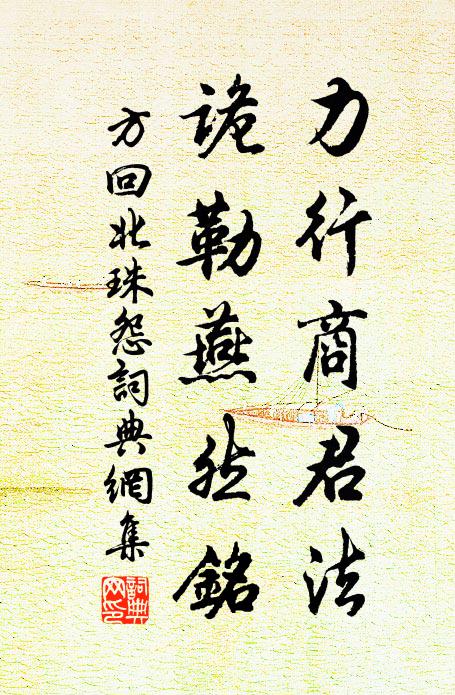 力行商君法
詭勒燕然銘
方回北珠怨詞典網集
詞典网印